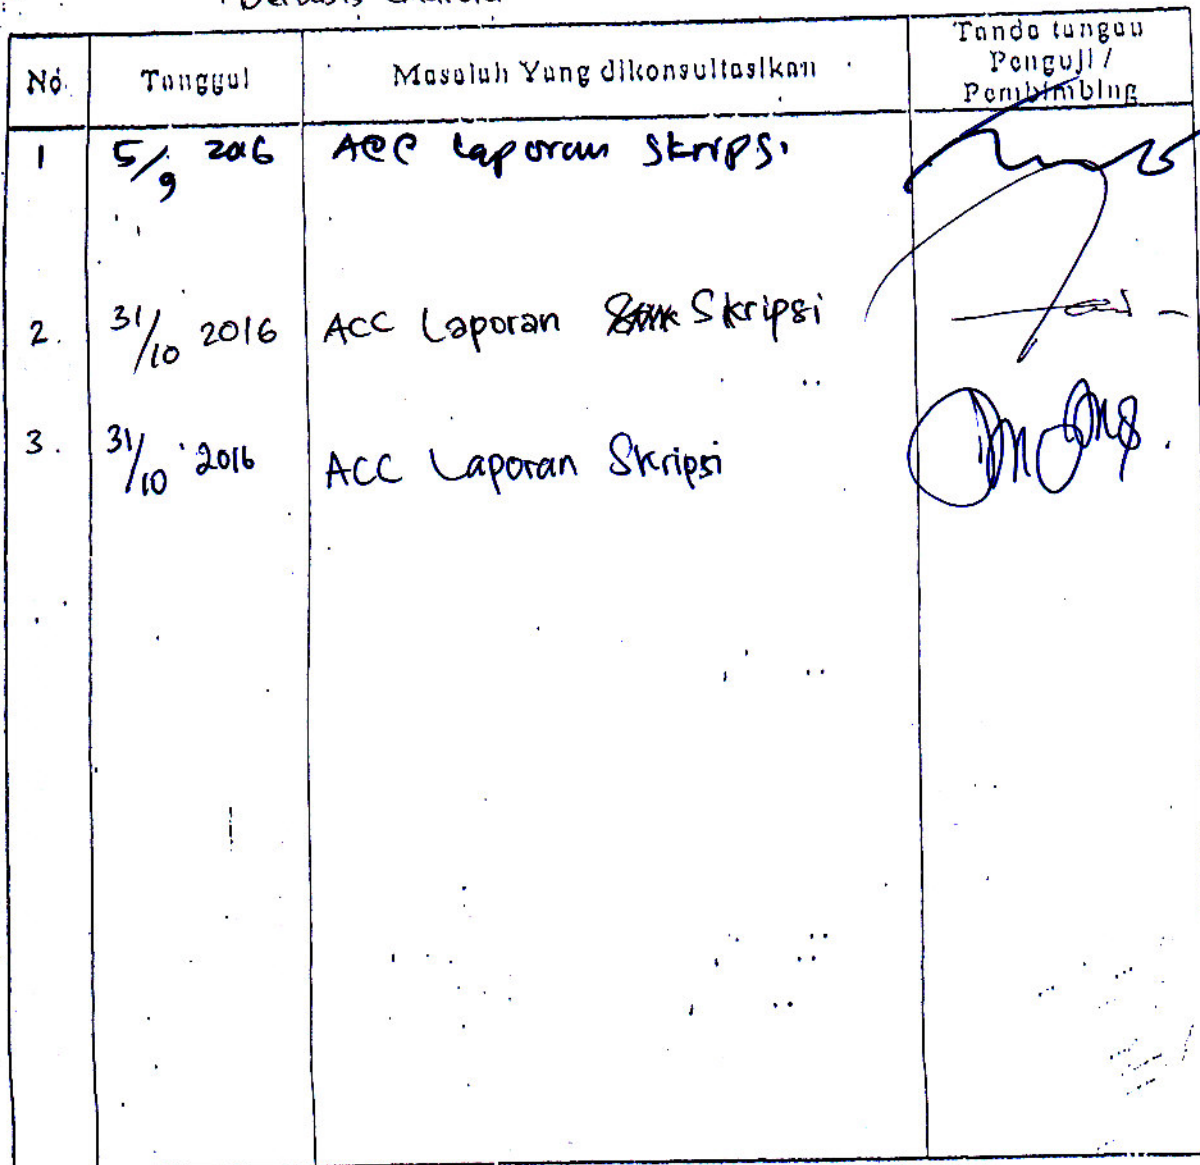 Berbasis Android
No. Tanggal Masalah Yang dikonsultasikan Tanda tangan
Penguji /
Pembimbing
1 5/9 2016 ACC Laporan Skripsi
2. 31/10 2016 ACC Laporan Skripsi
3. 31/10 2016 ACC Laporan Skripsi